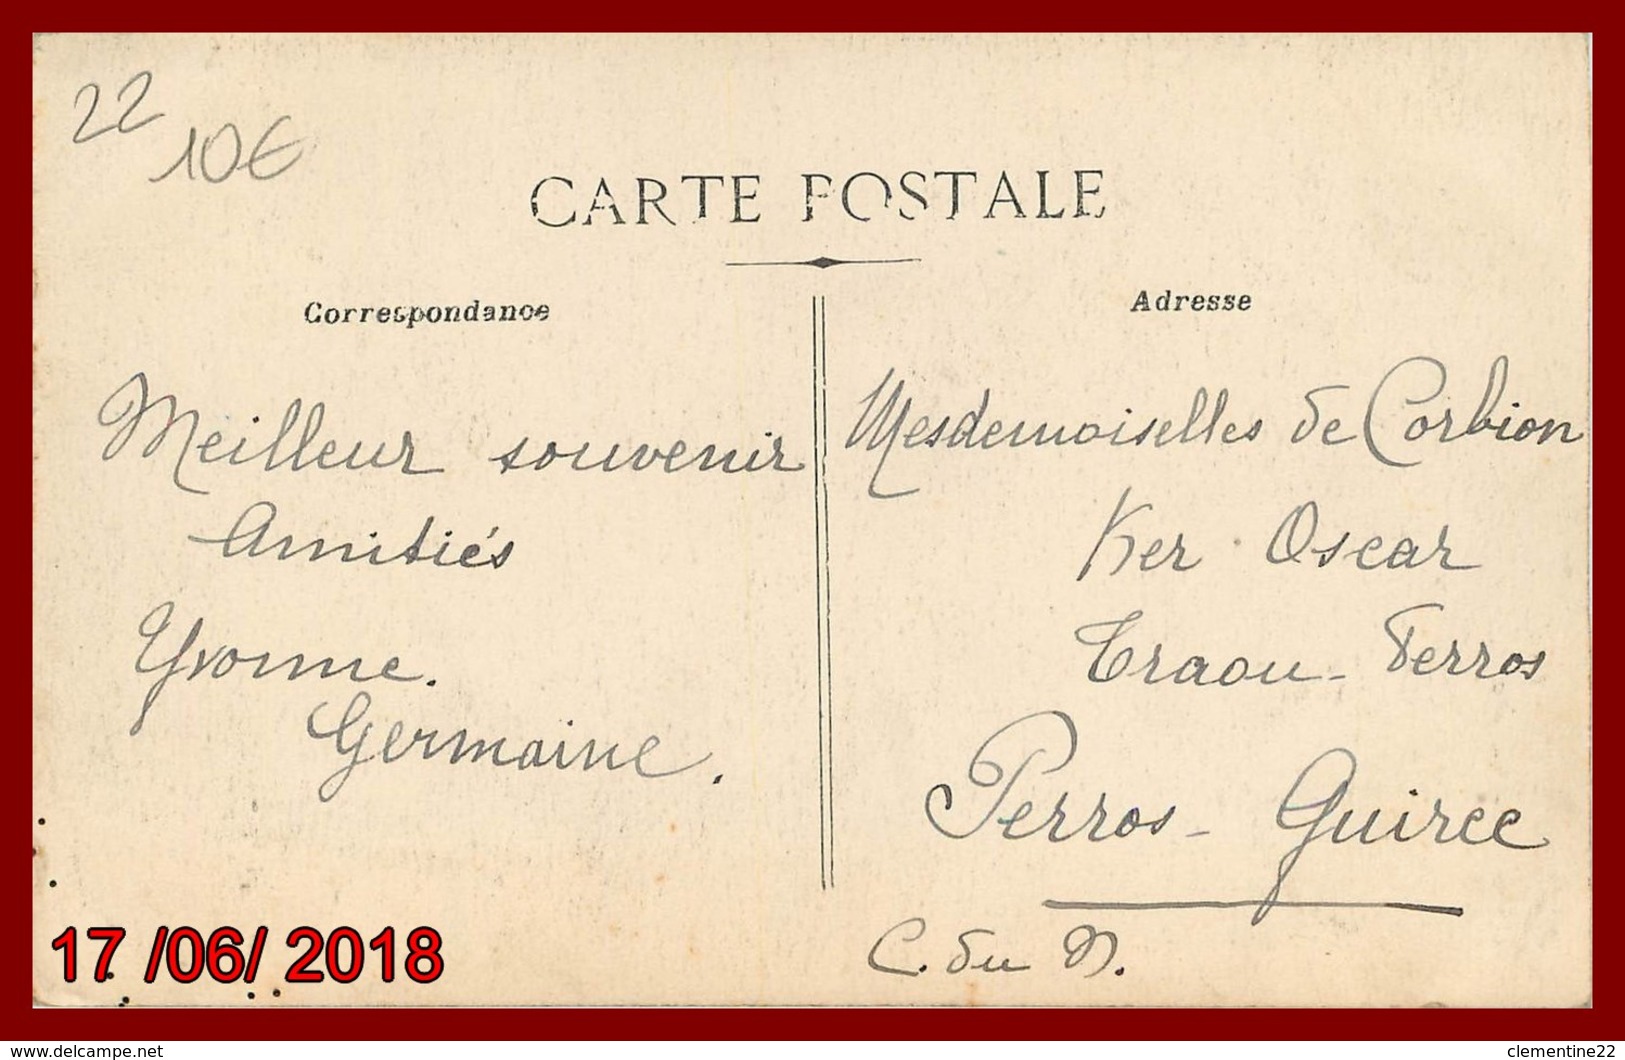 22
10€
CARTE POSTALE
Correspondance
Adresse
Meilleur souvenir
Amitiés
Yvonne.
Germaine.
Mesdemoiselles de Corbion
Ker Oscar
Traou-Perros
Perros-Guirec
C. du N.
17 /06/ 2018
www.delcampe.net
clementine22